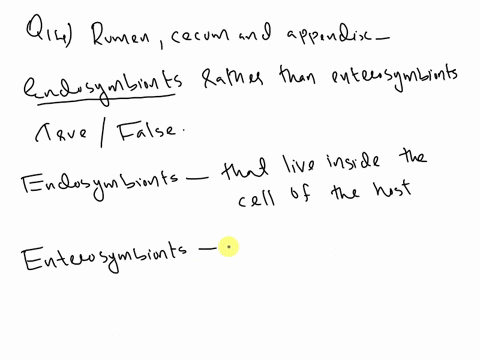 Q14) Rumen, cecum and appendix -
Endosymbionts Rather than enterosymbionts
True / False.
Endosymbionts - that live inside the
cell of the host
Enterosymbionts -